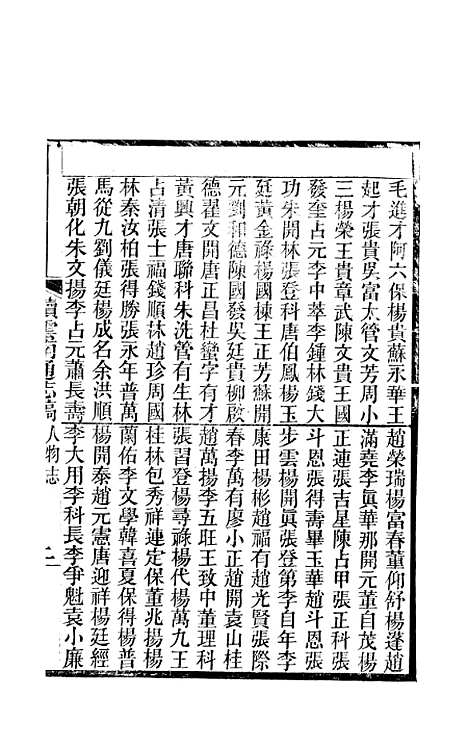 毛進才阿六保楊貴蘇永華王趙榮瑞楊富春董仰舒楊蓬趙
起才張貴吳富太管文芳周小滿堯李眞華那開元董自茂楊
三楊榮王貴章武陳文貴王國正連張吉星陳占甲張正科張
發奎占元李中萃李鍾林錢大斗恩張得壽畢玉華趙斗恩張
功朱開林張登科唐伯鳳楊玉步雲楊開眞張登第李自年李
廷黃金祿楊國棟王正芳蘇開康田楊彬趙福有趙光賢張際
元劉和德陳國發吳廷貴柳啟春李萬有廖小正趙開袁山桂
德翟文開唐正昌杜蠻字有才趙萬揚李五旺王致中董理科
黃興才唐聯科朱洗管有生林張習登楊尋祿楊代楊萬九王
占清張士福錢順林趙珍周國桂林包秀祥連定保董兆揚楊
林泰汝柏張得勝張永年普萬蘭佑李文學韓喜夏保得楊普
馬從九劉儀廷楊成名余洪順楊開泰趙元憲唐迎祥楊廷經
張朝化朱文揚李占元蕭長壽李大用李科長李爭魁袁小廉
續雲南通志稿 人物志